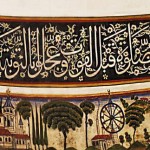 لصلوة قبل الفوت وعجلوا بالتوبة